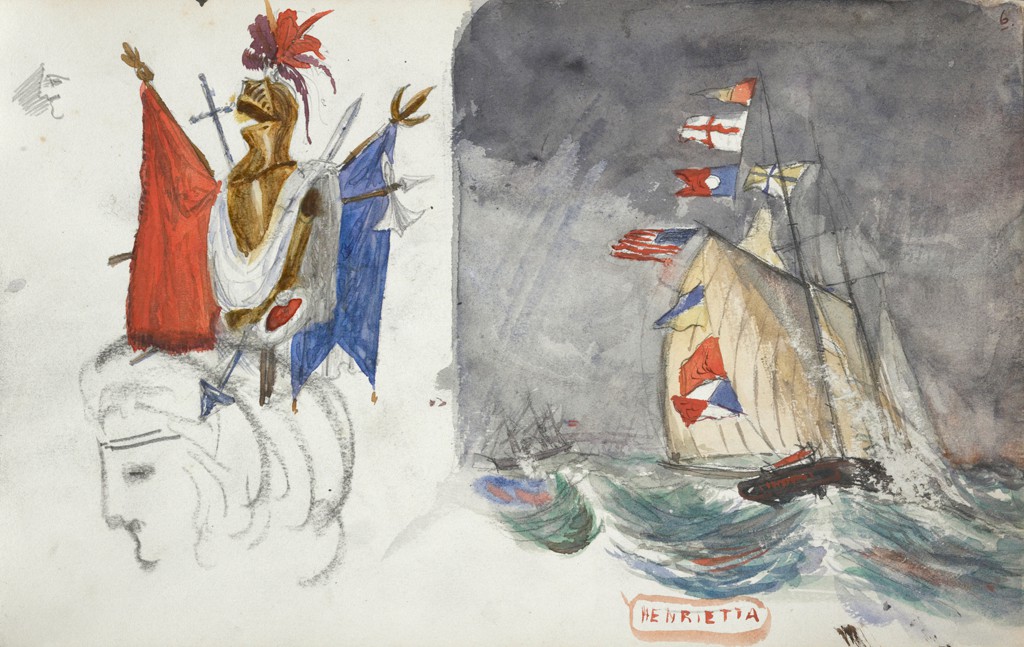 6.
HENRIETTA